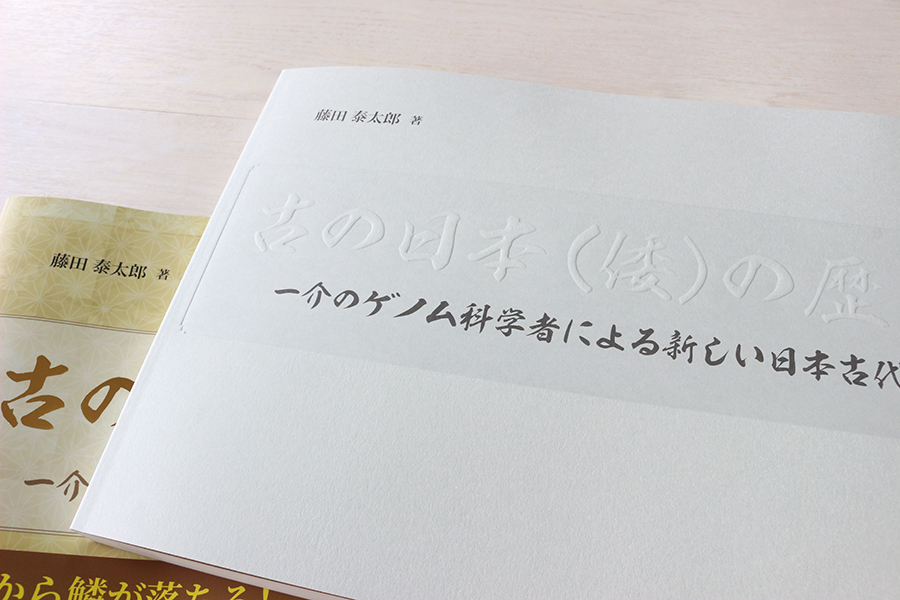 藤田 泰太郎 著
古の日本(倭)の歴
一介のゲノム科学者による新しい日本古代
藤田 泰太郎 著
古の
一介
から鱗が落ちる!